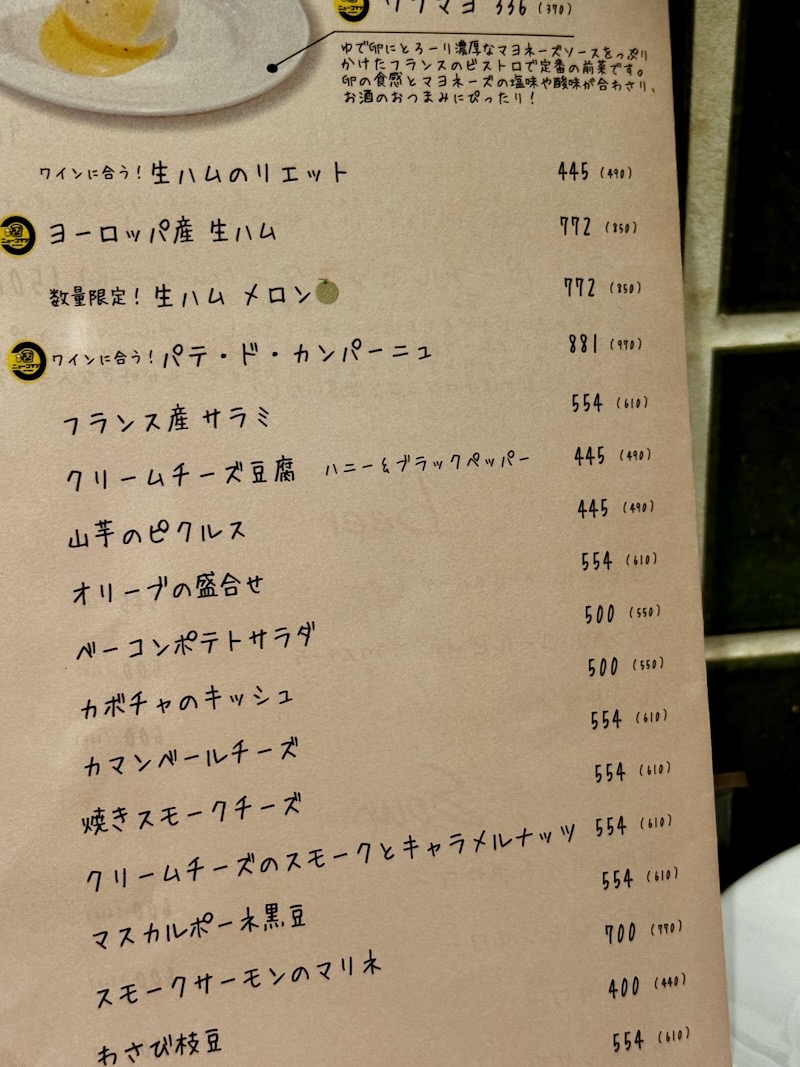 ウフマヨ 336 (370)
ゆで卵にとろーり濃厚なマヨネーズソースをたっぷり
かけたフランスのビストロで定番の前菜です。
卵の食感とマヨネーズの塩味や酸味が合わさり、
お酒のおつまみにぴったり！
ワインに合う！生ハムのリエット 445 (490)
ヨーロッパ産 生ハム 772 (850)
数量限定！生ハム メロン 772 (850)
ワインに合う！パテ・ド・カンパーニュ 881 (970)
フランス産 サラミ 554 (610)
クリームチーズ豆腐 ハニー&ブラックペッパー 445 (490)
山芋のピクルス 445 (490)
オリーブの盛合せ 554 (610)
ベーコンポテトサラダ 500 (550)
カボチャのキッシュ 500 (550)
カマンベールチーズ 554 (610)
焼きスモークチーズ 554 (610)
クリームチーズのスモークとキャラメルナッツ 554 (610)
マスカルポーネ黒豆 554 (610)
スモークサーモンのマリネ 700 (770)
わさび枝豆 400 (440)
554 (610)